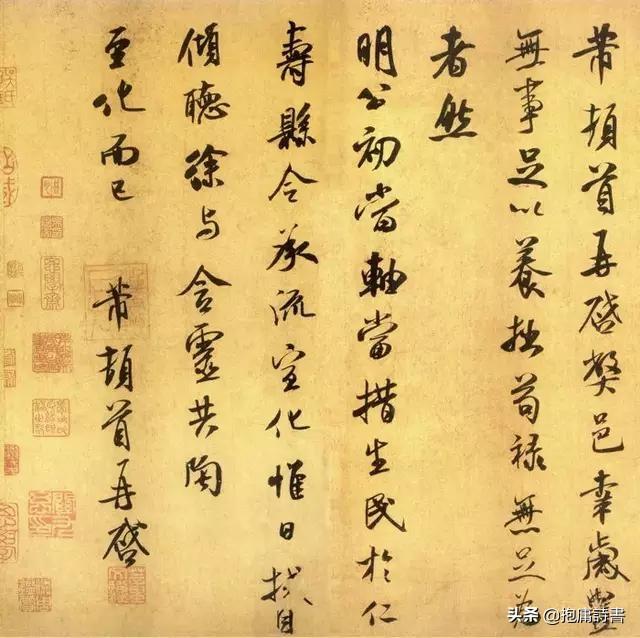 芾頓首再啓弊邑幸歲豐
無事足以養拙苟禄無足為
者然
明公初當軸當措生民於仁
壽縣令承流宣化惟日拭目
傾聽徐与含靈共陶
至化而已 芾頓首再啓
头条 @抱庸詩書